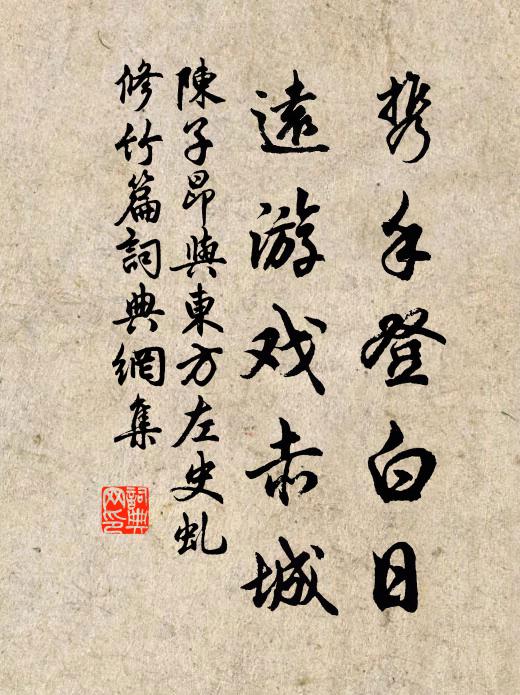 携手登白日
遠游戏赤城
陳子昂與東方左史虬
修竹篇詞典網集
詞典網印